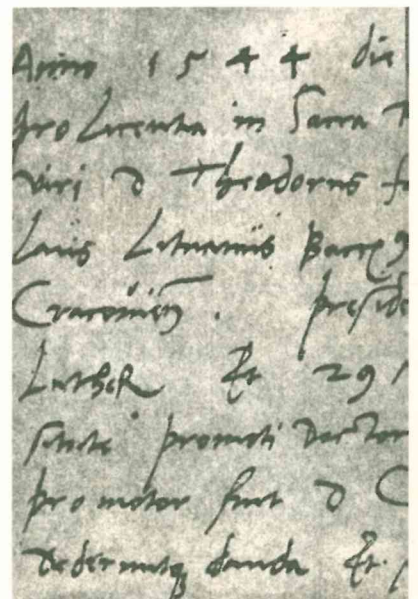 Anno 1544 die
pro Licentia in Sacra T
viri D Theodorus fa
laus Lituanus Bacc9
Cracouien̄ . preside
Luther Et 29
promoti Doctor
promotor fuit D C
dederuntq danda Et.